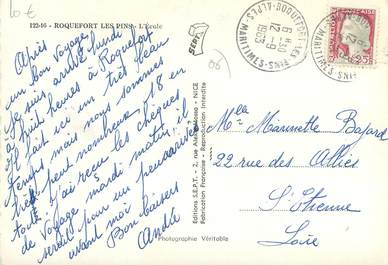 10€
122-16 - ROQUEFORT LES PINS - L'École
Après
un bon voyage
je suis arrivé lundi
à huit heures à Roquefort
il fait ici un très beau
temps mais nous sommes
très peu nombreux 18 en
tout. J'ai reçu les chèques
de voyage mardi matin il
serait pour un
avant moi
Bon baisers
André
Editions S.E.P.T. - 2, rue - NICE
Fabrication Française - Reproduction interdite
Photographie Véritable
06
ROQUEFORT-LES-PINS
6 H30
12 -9
1963
ALPES-MARITIMES
0,25
Melle Marinette Bajard
22 rue des Alliés
St Etienne
Loire